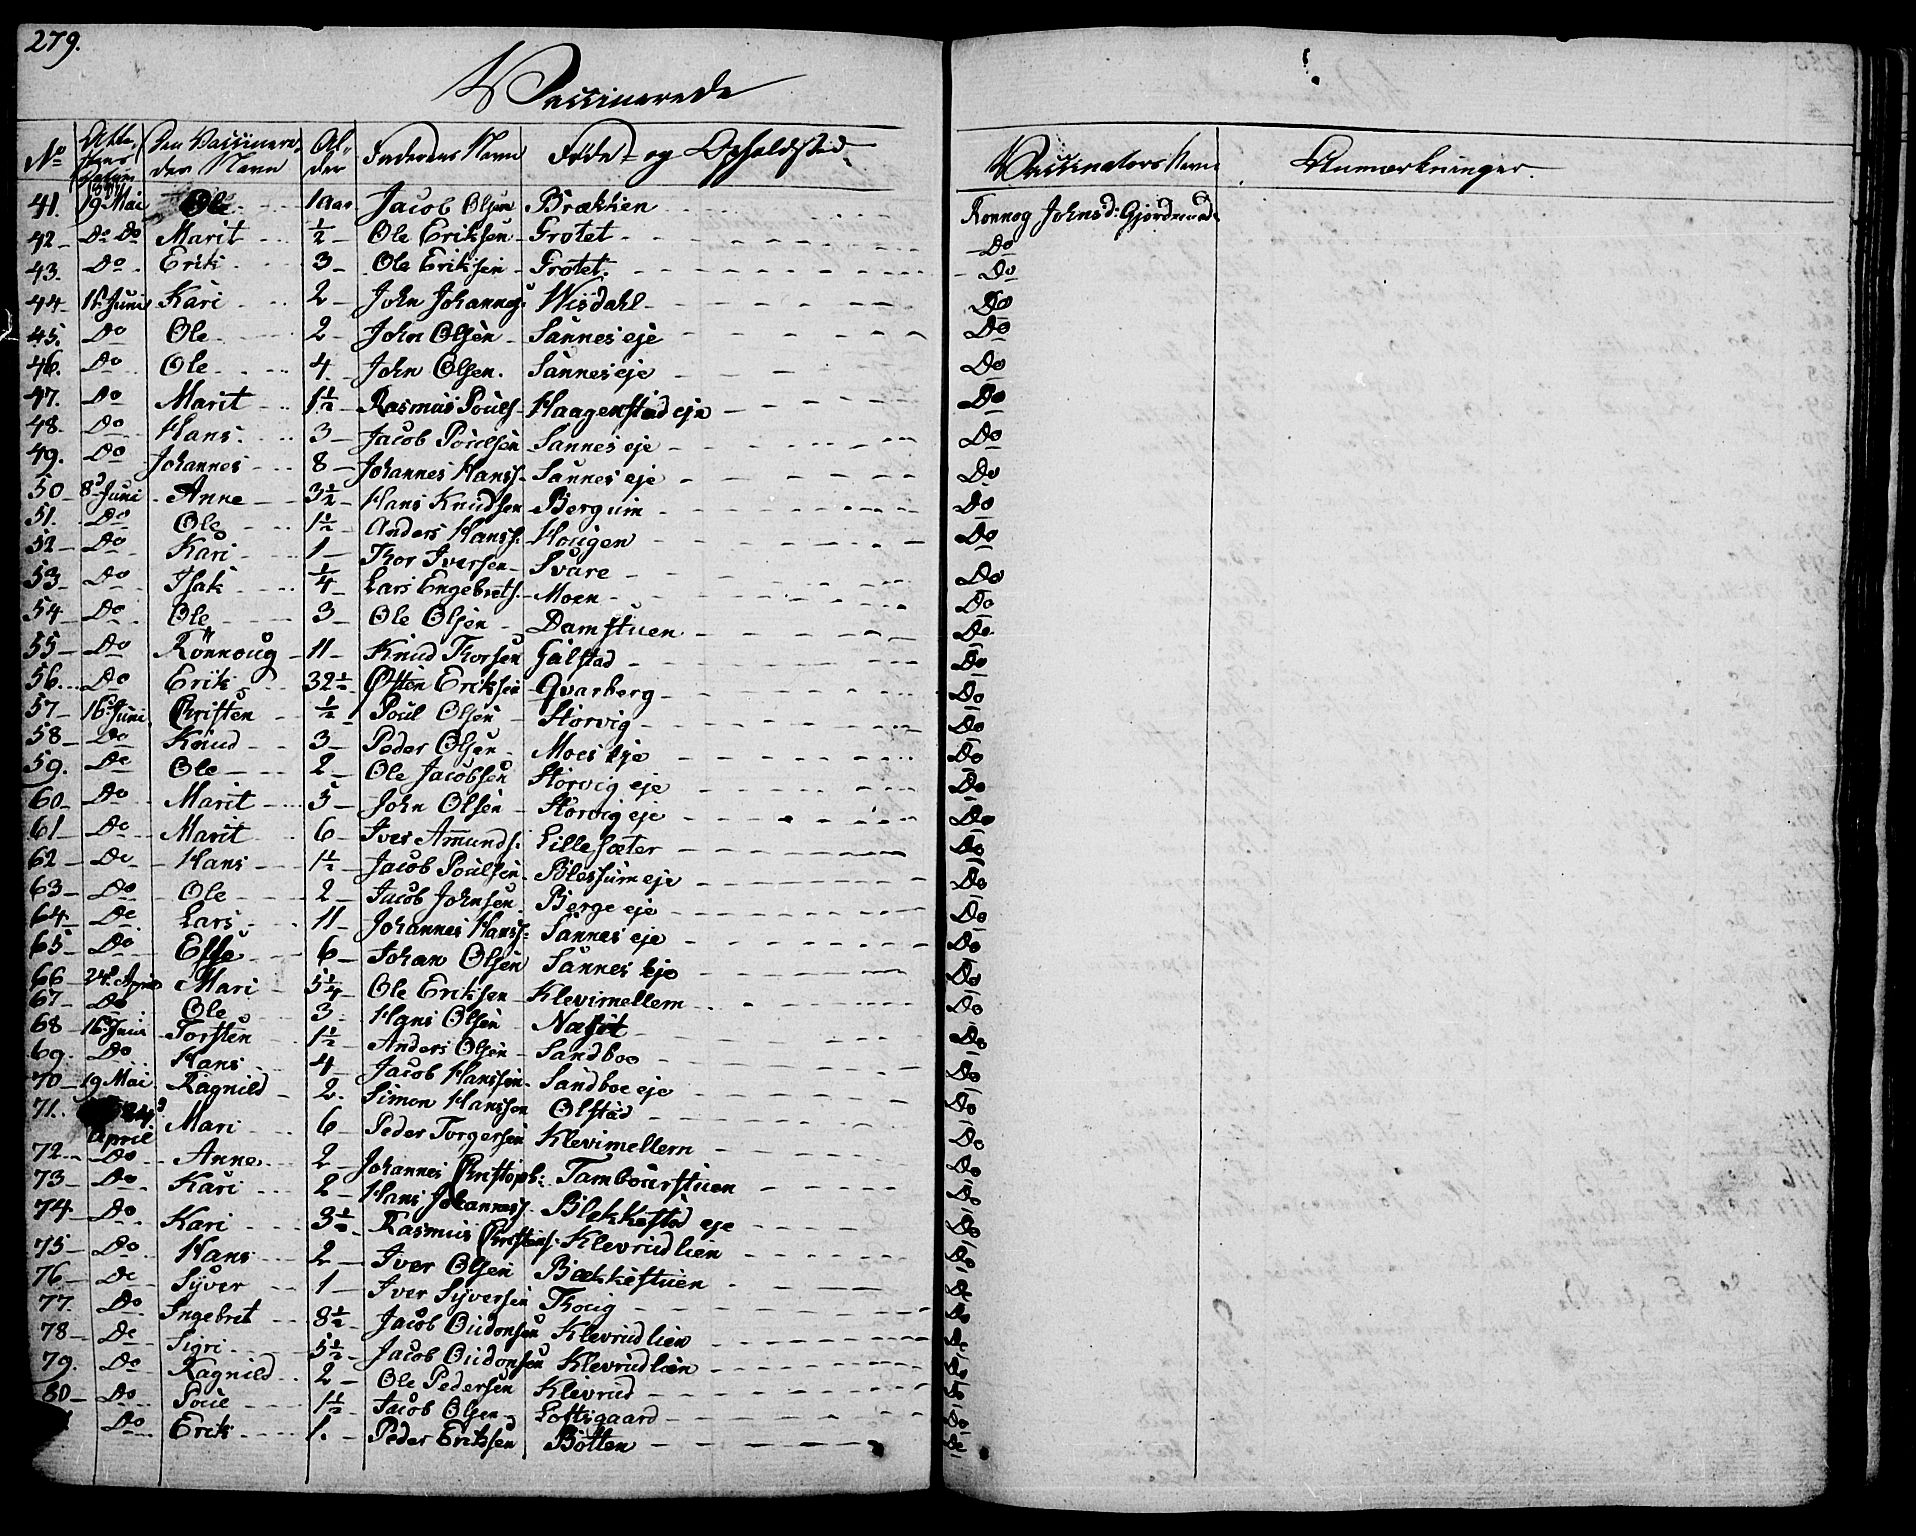 279.
Vaccinerede
No Atte- stens Datum Den Vaccinere- des Navn Al- der Faderens Navn Føde- og Opholdsted Vaccinators Navn Anmærkninger.
41. 19 Mai Ole 1 Aar Jacob Olsen Brækken Ronnog Johnsd: Gjördemod.
42 Do Do Marit ½ Ole Eriksen Grotet Do
43. Do Erik 3 Ole Eriksen Grotet. Do
44 Juni Kari 2 John Johannes: Wisdahl Do
45. Do Ole 2 John Olsen Sannes eje Do
46. Do Ole 4. John Olsen. Sannes eje Do
47. Do Marit 1½ Rasmus Pouls. Haagenstad eje Do
48. Do Hans. 3 Jacob Poulsen Sannes eje Do
49. Do Johannes 8 Johannes Hanss. Sannes eje Do
50 8d Juni Anne 3½ Hans Knudsen Bergum Do
51. Do Ole 1½ Anders Hanss: Hougen Do
52 Do Kari 1 Thor Iversen Svare Do
53 Do Isak ¼ Lars Engebrets. Moen Do
54 Do Ole 3 Ole Olsen Damstuen Do
55 Do Rönnoug 11 Knud Thorsen Galstad Do
56 Do Erik 32½ Østen Eriksen Qvarberg Do
57 16 Juni Cristen ½ Poul Olsen Storvig Do
58 Do Knud 3 Peder Olsen Moes eje Do
59. Do Ole 2 Ole Jacobsen Storvig eje Do
60 Do Marit 5 John Olsen Storvig eje Do
61 Do Marit 6 Iver Amunds. Lillesæter Do
62 Do Hans 1½ Jacob Poulsen Blessum eje Do
63 Do Ole 2 Jacob Johnsen Berge eje Do
64 Do Lars 11 Johannes Hanss: Sannes eje Do
65 Do 6 Johan Olsen Sannes eje Do
66 24 April Mari 5¼ Ole Eriksen Klevimellem Do
67 Do Ole 3 Hans Olsen Do
68 16 Juni Torsten 1½ Anders Olsen Sandboe Do
69. Do Hans 4 Jacob Hanssen Sandboe eje Do
70 19 Mai Ragnild 2. Simon Hanssen Olstad Do
71. 24d April Mari 6 Peder Torgersen Klevimellem Do
72 Do Anne 2 Johannes Christoph: Tambourstuen Do
73 Do Kari 2 Hans Johanness. Blekkestad eje Do
74 Do Kari 3½ Rasmus Christens. Klevrudlien Do
75 Do Hans 2 Iver Olsen Bækkestuen Do
76 Do Syver 1 Iver Syversen Do
77. Do Ingebret 8½ Jacob Oudonsen Klevrudlien Do
78 Do Sigri 5½ Jacob Oudonsen Klevrudlien Do
79. Do Ragnild 2 Ole Pedersen Klevrud Do
80 Do Poul 1½ Jacob Olsen Loftsgaard Do
Do Erik 1. Peder Eriksen Botten Do